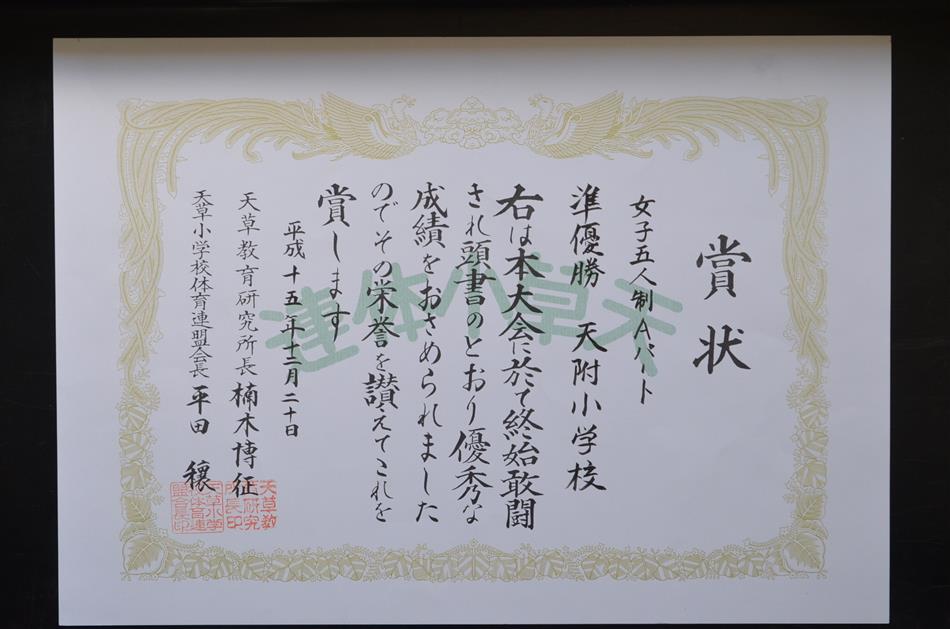 賞状
女子五人制Aパート
準優勝 天附小学校
右は本大会に於て終始敢闘
され頭書のとおり優秀な
成績をおさめられました
のでその栄誉を讃えてこれを
賞します
平成十五年十二月二十日
天草教育研究所長 楠木博征
天草小学校体育連盟会長 平田 穣
天草小体連